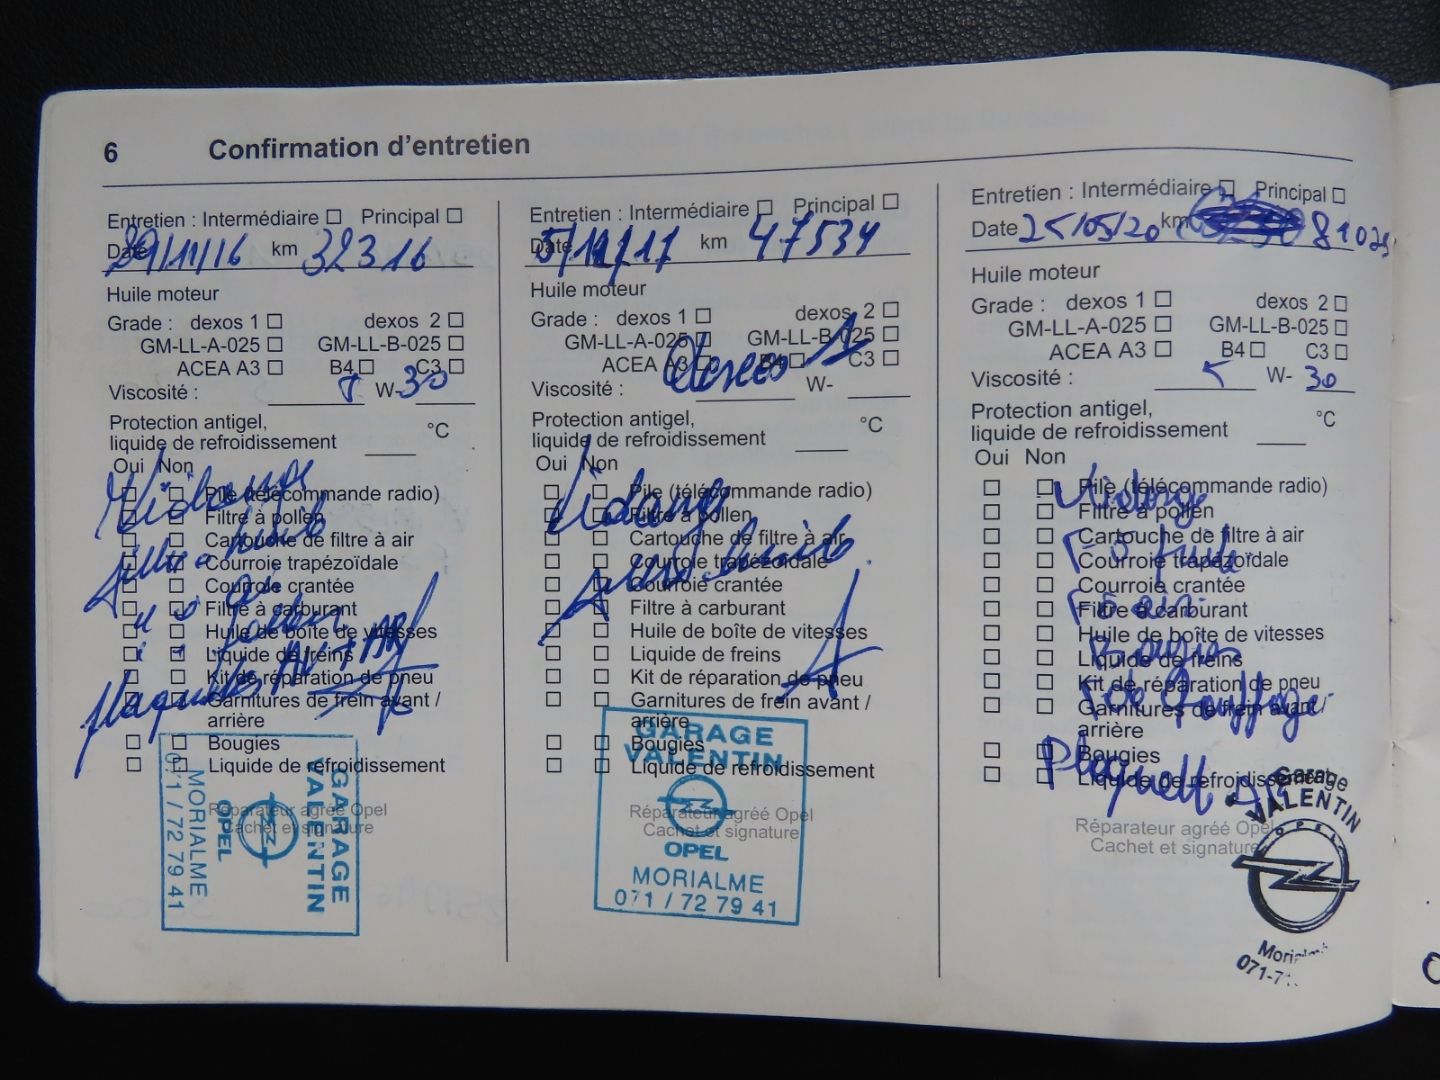 6 Confirmation d'entretien
Entretien : Intermédiaire Principal
Date 29/11/16 km 32316
Huile moteur
Grade : dexos 1 dexos 2
GM-LL-A-025 GM-LL-B-025
ACEA A3 B4 C3
Viscosité : 5 W-30
Protection antigel,
liquide de refroidissement °C
Oui Non
Pile (télécommande radio)
Filtre à pollen
Cartouche de filtre à air
Courroie trapézoïdale
Courroie crantée
Filtre à carburant
Huile de boîte de vitesses
Liquide de freins
Kit de réparation de pneu
Garnitures de frein avant /
arrière
Bougies
Liquide de refroidissement
Vidange
filtre a huile
" " air
" " pollen
plaquettes AV + AR
Réparateur agréé Opel
Cachet et signature
GARAGE
VALENTIN
OPEL
MORIALME
071 / 72 79 41
Entretien : Intermédiaire Principal
Date km 47534
Huile moteur
Grade : dexos 1 dexos 2
GM-LL-A-025 GM-LL-B-025
ACEA A3 B4 C3
Dexos 1
Viscosité : W-
Protection antigel,
liquide de refroidissement °C
Oui Non
Pile (télécommande radio)
Filtre à pollen
Cartouche de filtre à air
Courroie trapézoïdale
Courroie crantée
Filtre à carburant
Huile de boîte de vitesses
Liquide de freins
Kit de réparation de pneu
Garnitures de frein avant /
arrière
Bougies
Liquide de refroidissement
Vidange
filtre a huile
Réparateur agréé Opel
Cachet et signature
GARAGE
VALENTIN
OPEL
MORIALME
071 / 72 79 41
Entretien : Intermédiaire Principal
Date 25/05/20 km
Huile moteur
Grade : dexos 1 dexos 2
GM-LL-A-025 GM-LL-B-025
ACEA A3 B4 C3
Viscosité : 5 W- 30
Protection antigel,
liquide de refroidissement °C
Oui Non
Pile (télécommande radio)
Filtre à pollen
Cartouche de filtre à air
Courroie trapézoïdale
Courroie crantée
Filtre à carburant
Huile de boîte de vitesses
Liquide de freins
Kit de réparation de pneu
Garnitures de frein avant /
arrière
Bougies
Liquide de refroidissement
Vidange
F à huile
F à air
Bougies
Plaquett
Réparateur agréé Opel
Cachet et signature
Garage
VALENTIN
OPEL